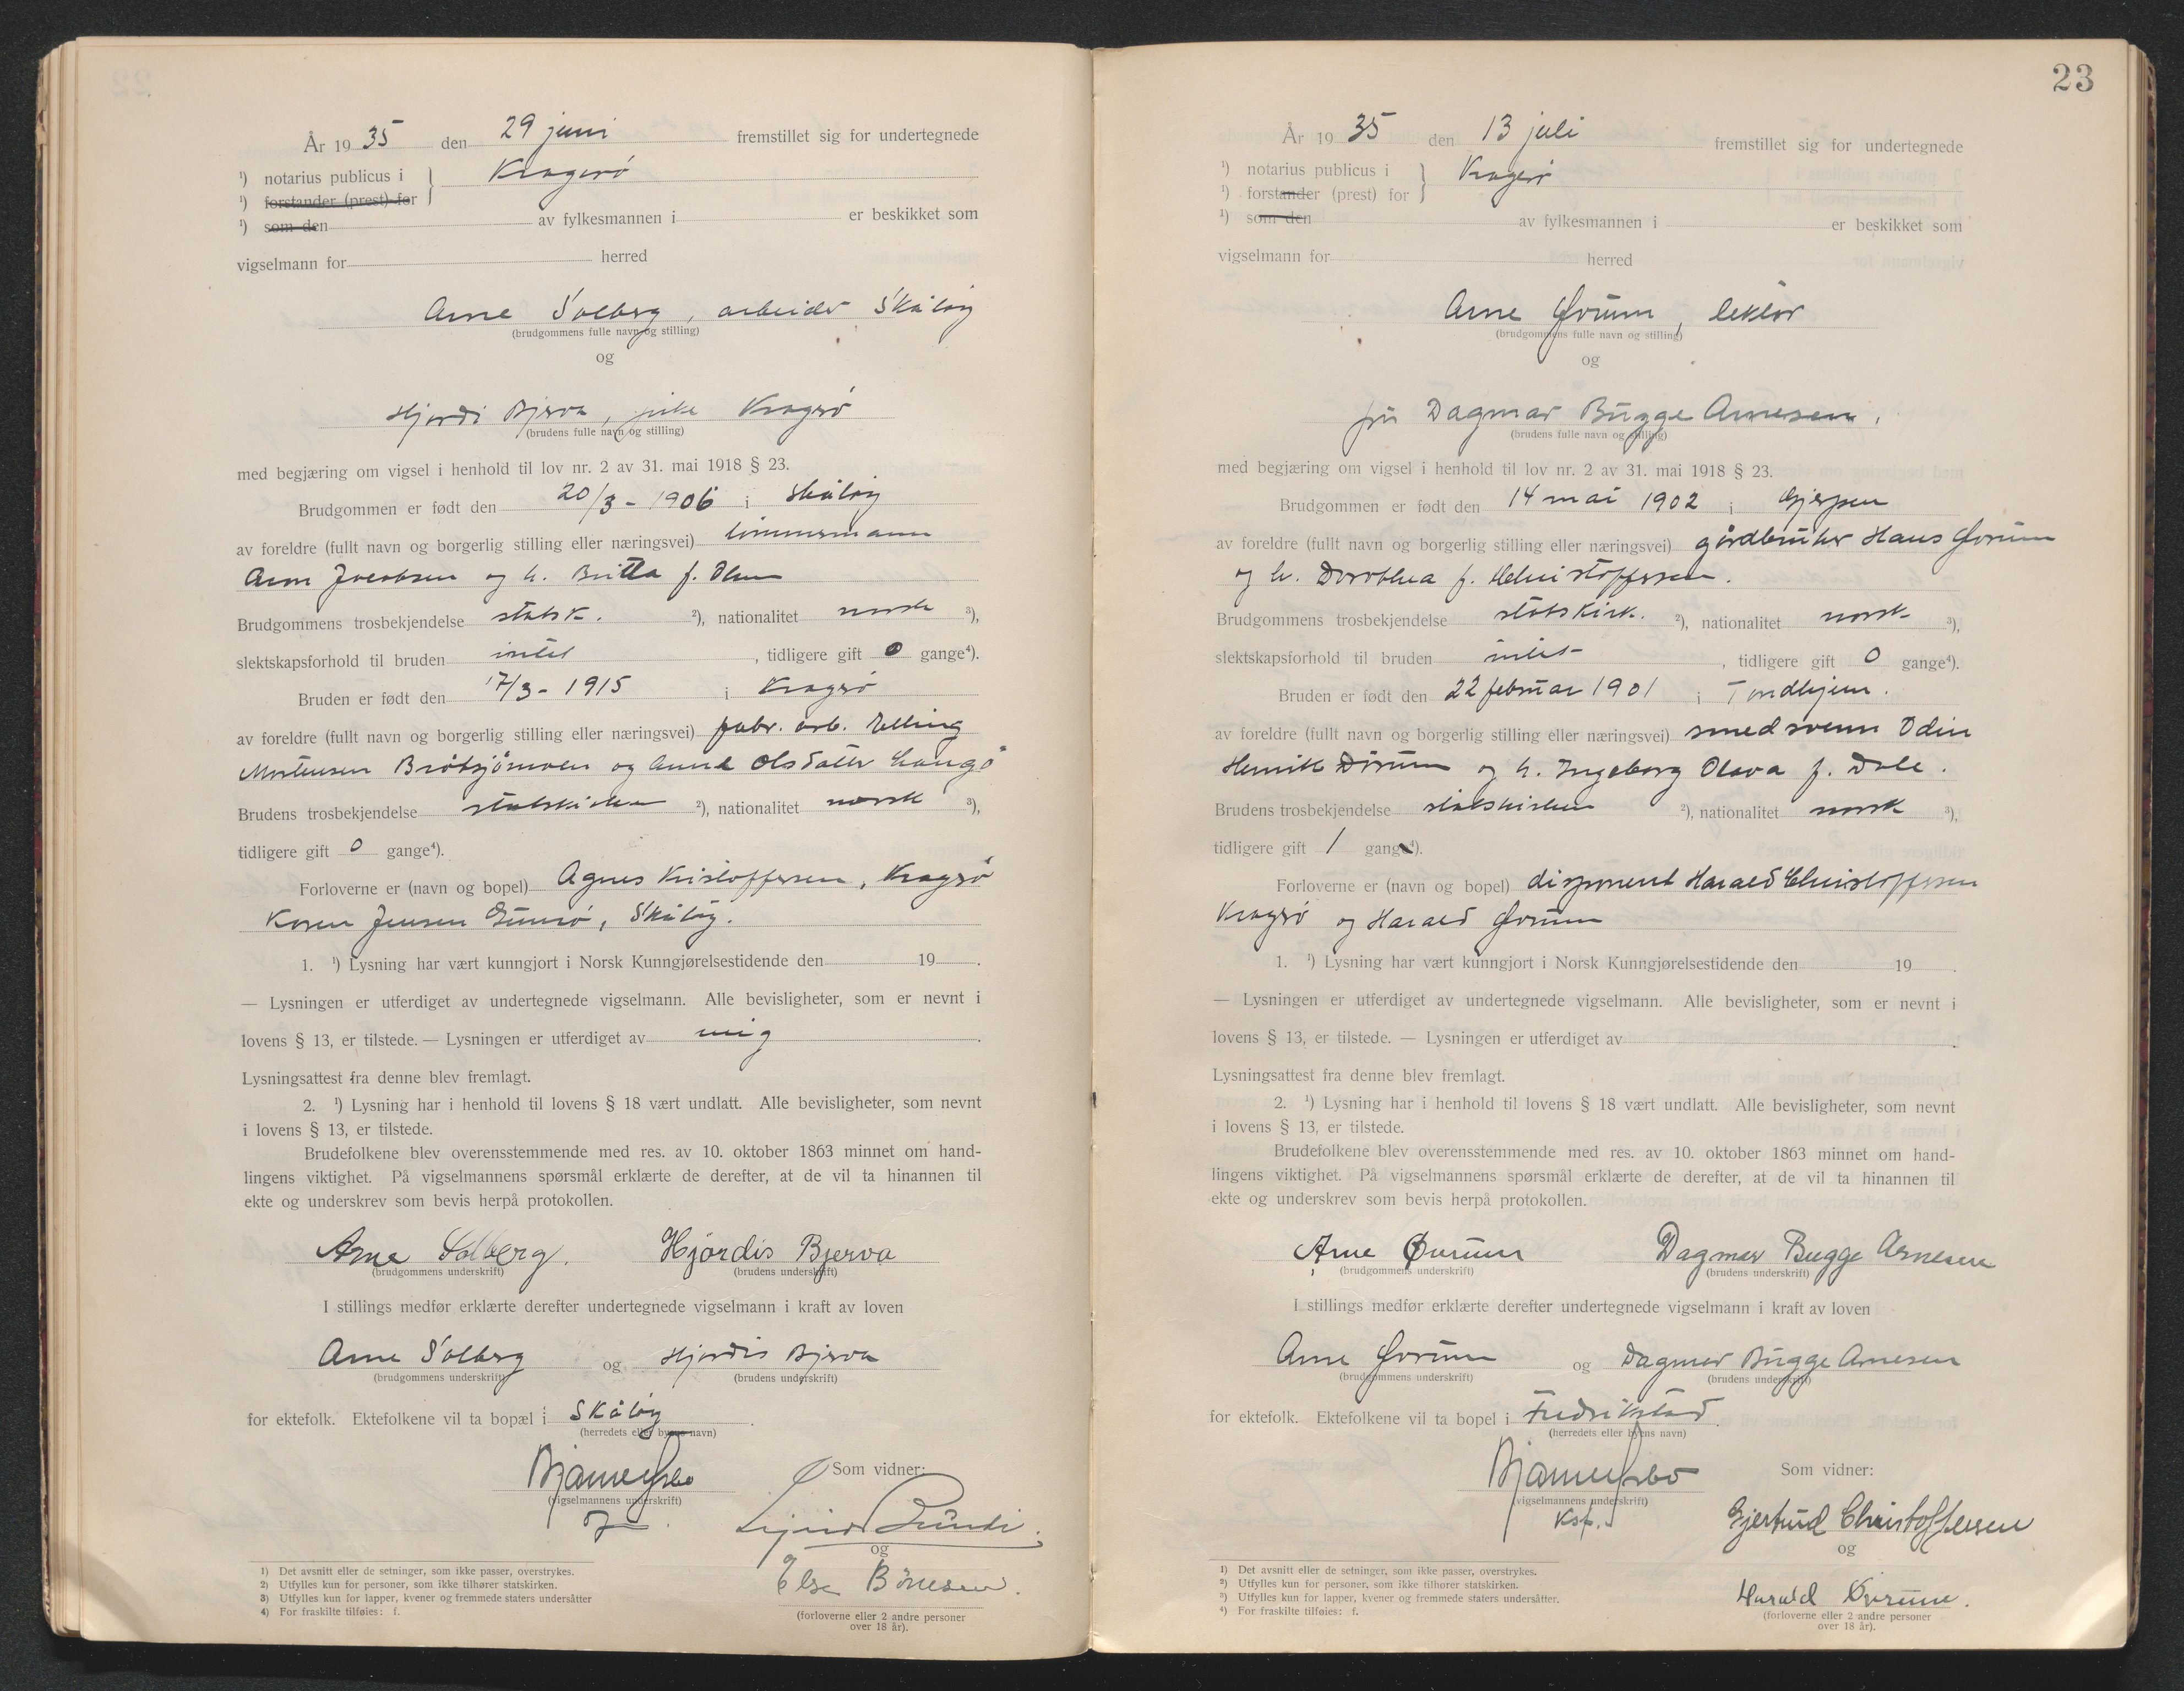 År 1935 den 29 juni fremstillet sig for undertegnede
¹) notarius publicus i } Kragerø
¹) forstander (prest) for
¹) som den av fylkesmannen i er beskikket som
vigselmann for herred
Arne Solberg, arbeider Skåtøy
(brudgommens fulle navn og stilling)
og
Hjørdi Bjerva, pike Kragerø
(brudens fulle navn og stilling)
med begjæring om vigsel i henhold til lov nr. 2 av 31. mai 1918 § 23.
Brudgommen er født den 20/3 - 1906 i Skåtøy
av foreldre (fullt navn og borgerlig stilling eller næringsvei) tømmermann
Aron Jacobsen og h. Britta f. Olsen
Brudgommens trosbekjendelse statsk. ²), nationalitet norsk ³),
slektskapsforhold til bruden intet , tidligere gift 0 gange⁴).
Bruden er født den 17/3 - 1915 i Kragerø
av foreldre (fullt navn og borgerlig stilling eller næringsvei) fabr. arb. Elling
Mortensen og Anne Olsdatter Langø
Brudens trosbekjendelse statskirken ²), nationalitet norsk ³),
tidligere gift 0 gange⁴).
Forloverne er (navn og bopel) Agnes Kristoffersen, Kragerø
Karen Jensen Gumø, Skåtøy.
1. ¹) Lysning har vært kunngjort i Norsk Kunngjørelsestidende den 19 .
— Lysningen er utferdiget av undertegnede vigselmann. Alle bevisligheter, som er nevnt i
lovens § 13, er tilstede. — Lysningen er utferdiget av mig .
Lysningsattest fra denne blev fremlagt.
2. ¹) Lysning har i henhold til lovens § 18 vært undlatt. Alle bevisligheter, som nevnt
i lovens § 13, er tilstede.
Brudefolkene blev overensstemmende med res. av 10. oktober 1863 minnet om hand-
lingens viktighet. På vigselmannens spørsmål erklærte de derefter, at de vil ta hinannen til
ekte og underskrev som bevis herpå protokollen.
Arne Solberg. Hjørdis Bjerva
(brudgommens underskrift) (brudens underskrift)
I stillings medfør erklærte derefter undertegnede vigselmann i kraft av loven
Arne Solberg og Hjørdis Bjerva
(brudgommens underskrift) (brudens underskrift)
for ektefolk. Ektefolkene vil ta bopæl i Skåtøy .
(herredets eller byens navn)
Som vidner:
(vigselmannens underskrift)
og
Else
(forloverne eller 2 andre personer
over 18 år).
1) Det avsnitt eller de setninger, som ikke passer, overstrykes.
2) Utfylles kun for personer, som ikke tilhører statskirken.
3) Utfylles kun for lapper, kvener og fremmede staters undersåtter
4) For fraskilte tilføies: f.
23
År 1935 den 13 juli fremstillet sig for undertegnede
¹) notarius publicus i } Kragerø
¹) forstander (prest) for
¹) som den av fylkesmannen i er beskikket som
vigselmann for herred
Arne Ørum, lektor
(brudgommens fulle navn og stilling)
og
fru Dagmar Bugge Arnesen,
(brudens fulle navn og stilling)
med begjæring om vigsel i henhold til lov nr. 2 av 31. mai 1918 § 23.
Brudgommen er født den 14 mai 1902 i Gjerpen
av foreldre (fullt navn og borgerlig stilling eller næringsvei) gårdbruker Hans Ørum
og h. Dorothea f. Christoffersen.
Brudgommens trosbekjendelse statskirk. ²), nationalitet norsk ³),
slektskapsforhold til bruden intet , tidligere gift 0 gange⁴).
Bruden er født den 22 februar 1901 i Trondhjem.
av foreldre (fullt navn og borgerlig stilling eller næringsvei) smedsvenn Odin
Henrik Dørum og h. Ingeborg Olava f. Dale.
Brudens trosbekjendelse statskirken ²), nationalitet norsk ³),
tidligere gift 1 gange⁴).
Forloverne er (navn og bopel) disponent Harald Christoffersen
Kragerø og Harald Ørum
1. ¹) Lysning har vært kunngjort i Norsk Kunngjørelsestidende den 19 .
— Lysningen er utferdiget av undertegnede vigselmann. Alle bevisligheter, som er nevnt i
lovens § 13, er tilstede. — Lysningen er utferdiget av .
Lysningsattest fra denne blev fremlagt.
2. ¹) Lysning har i henhold til lovens § 18 vært undlatt. Alle bevisligheter, som nevnt
i lovens § 13, er tilstede.
Brudefolkene blev overensstemmende med res. av 10. oktober 1863 minnet om hand-
lingens viktighet. På vigselmannens spørsmål erklærte de derefter, at de vil ta hinannen til
ekte og underskrev som bevis herpå protokollen.
Arne Ørum Dagmar Bugge Arnesen
(brudgommens underskrift) (brudens underskrift)
I stillings medfør erklærte derefter undertegnede vigselmann i kraft av loven
Arne Ørum og Dagmar Bugge Arnesen
(brudgommens underskrift) (brudens underskrift)
for ektefolk. Ektefolkene vil ta bopel i Fredrikstad.
(herredets eller byens navn)
Som vidner:
(vigselmannens underskrift)
Kst.
Gjertrud Christoffersen
og
Harald Ørum.
(forloverne eller 2 andre personer
over 18 år).
¹) Det avsnitt eller de setninger, som ikke passer, overstrykes.
²) Utfylles kun for personer, som ikke tilhører statskirken.
³) Utfylles kun for lapper, kvener og fremmede staters undersåtter.
⁴) For fraskilte tilføies: f.